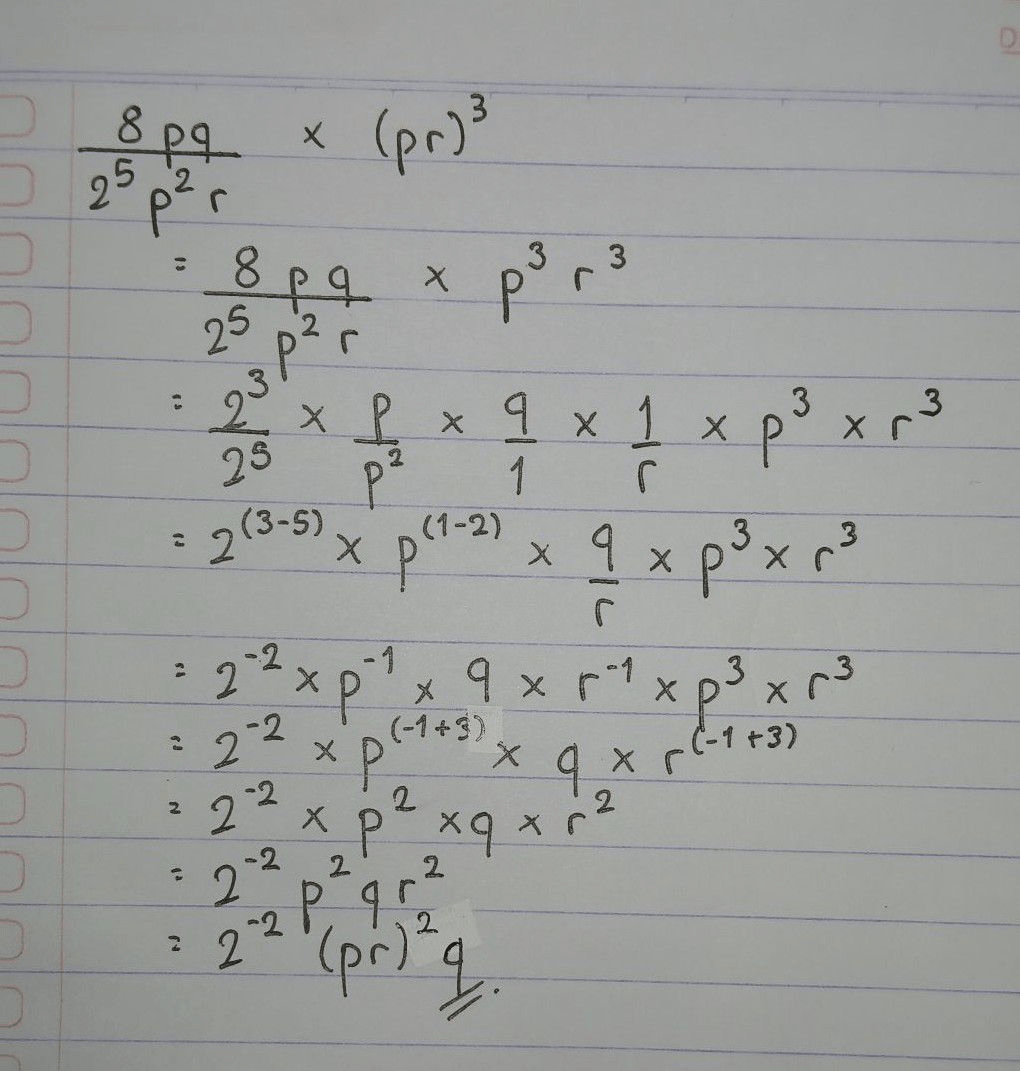 8pq/2⁵p²r × (pr)³
= 8pq/2⁵p²r × p³r³
= 2³/2⁵ × p/p² × q/1 × 1/r × p³ × r³
= 2⁽³⁻⁵⁾ × p⁽¹⁻²⁾ × q/r × p³ × r³
= 2⁻² × p⁻¹ × q × r⁻¹ × p³ × r³
= 2⁻² × p⁽⁻¹⁺³⁾ × q × r⁽⁻¹⁺³⁾
= 2⁻² × p² × q × r²
= 2⁻² p² q r²
= 2⁻² (pr)² q.